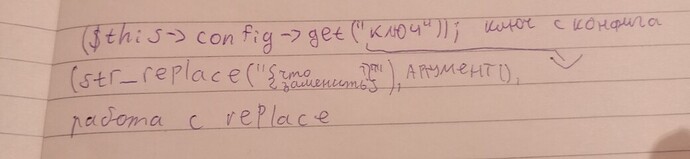 ($this->config->get("ключ")); ключ с конфига
(str_replace("{что заменить}"), АРГУМЕНТ(),
работа с replace